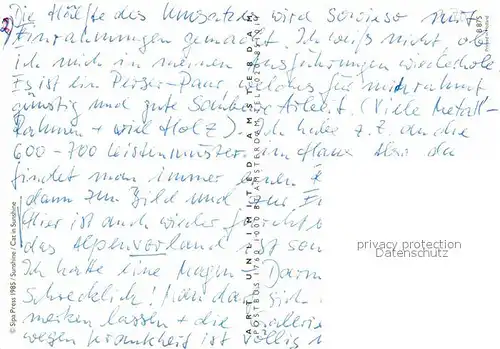 2)
Die Hälfte des Umsatzes wird sowieso mit
Einrahmungen gemacht. Ich weiß nicht ob
ich mich in meinen Ausführungen wiederhole
Es ist ein Perser-Paar, welches für mich rahmt
günstig und gute saubere Arbeit. (Viele Metall-
Rahmen + viel Holz). Ich habe z.t. an die
600-700 Leistenmuster im Haus Also da
findet man immer einen
dann zum Bild und
Hier ist auch wieder
das Alpenvorland ist
Ich hatte eine Magen Darm
Schrecklich! Man darf sich
merken lassen + die Galerie
wegen Krankheit ist völlig
© Sipa Press 1985 / Sunshine / Cat in Sunshine
ART UNLIMITED AMSTERDAM
POSTBUS 1760 1000 BT AMSTERDAM TEL. 020
B 875
privacy protection
Datenschutz